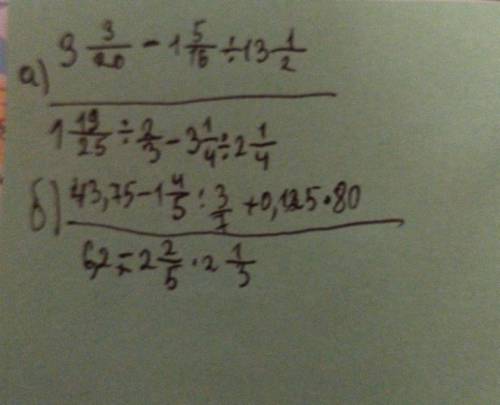 а) 3 3/20 - 1 5/16 ÷ 13 1/2
1 19/25 ÷ 2/3 - 3 1/4 ÷ 2 1/4
б) 43,75 - 1 4/5 : 3/7 + 0,125 · 80
6,2 ÷ 2 2/5 · 2 1/3